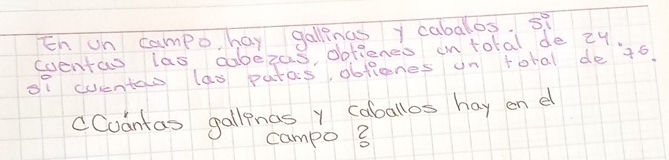 En un campo, hay gallinas y cabalos. Si
cuentas las cabezas, obtienes un total de 24.
si cuentas las patas, obtienes un total de 76.
¿Cuántas gallinas y caballos hay en el
campo?